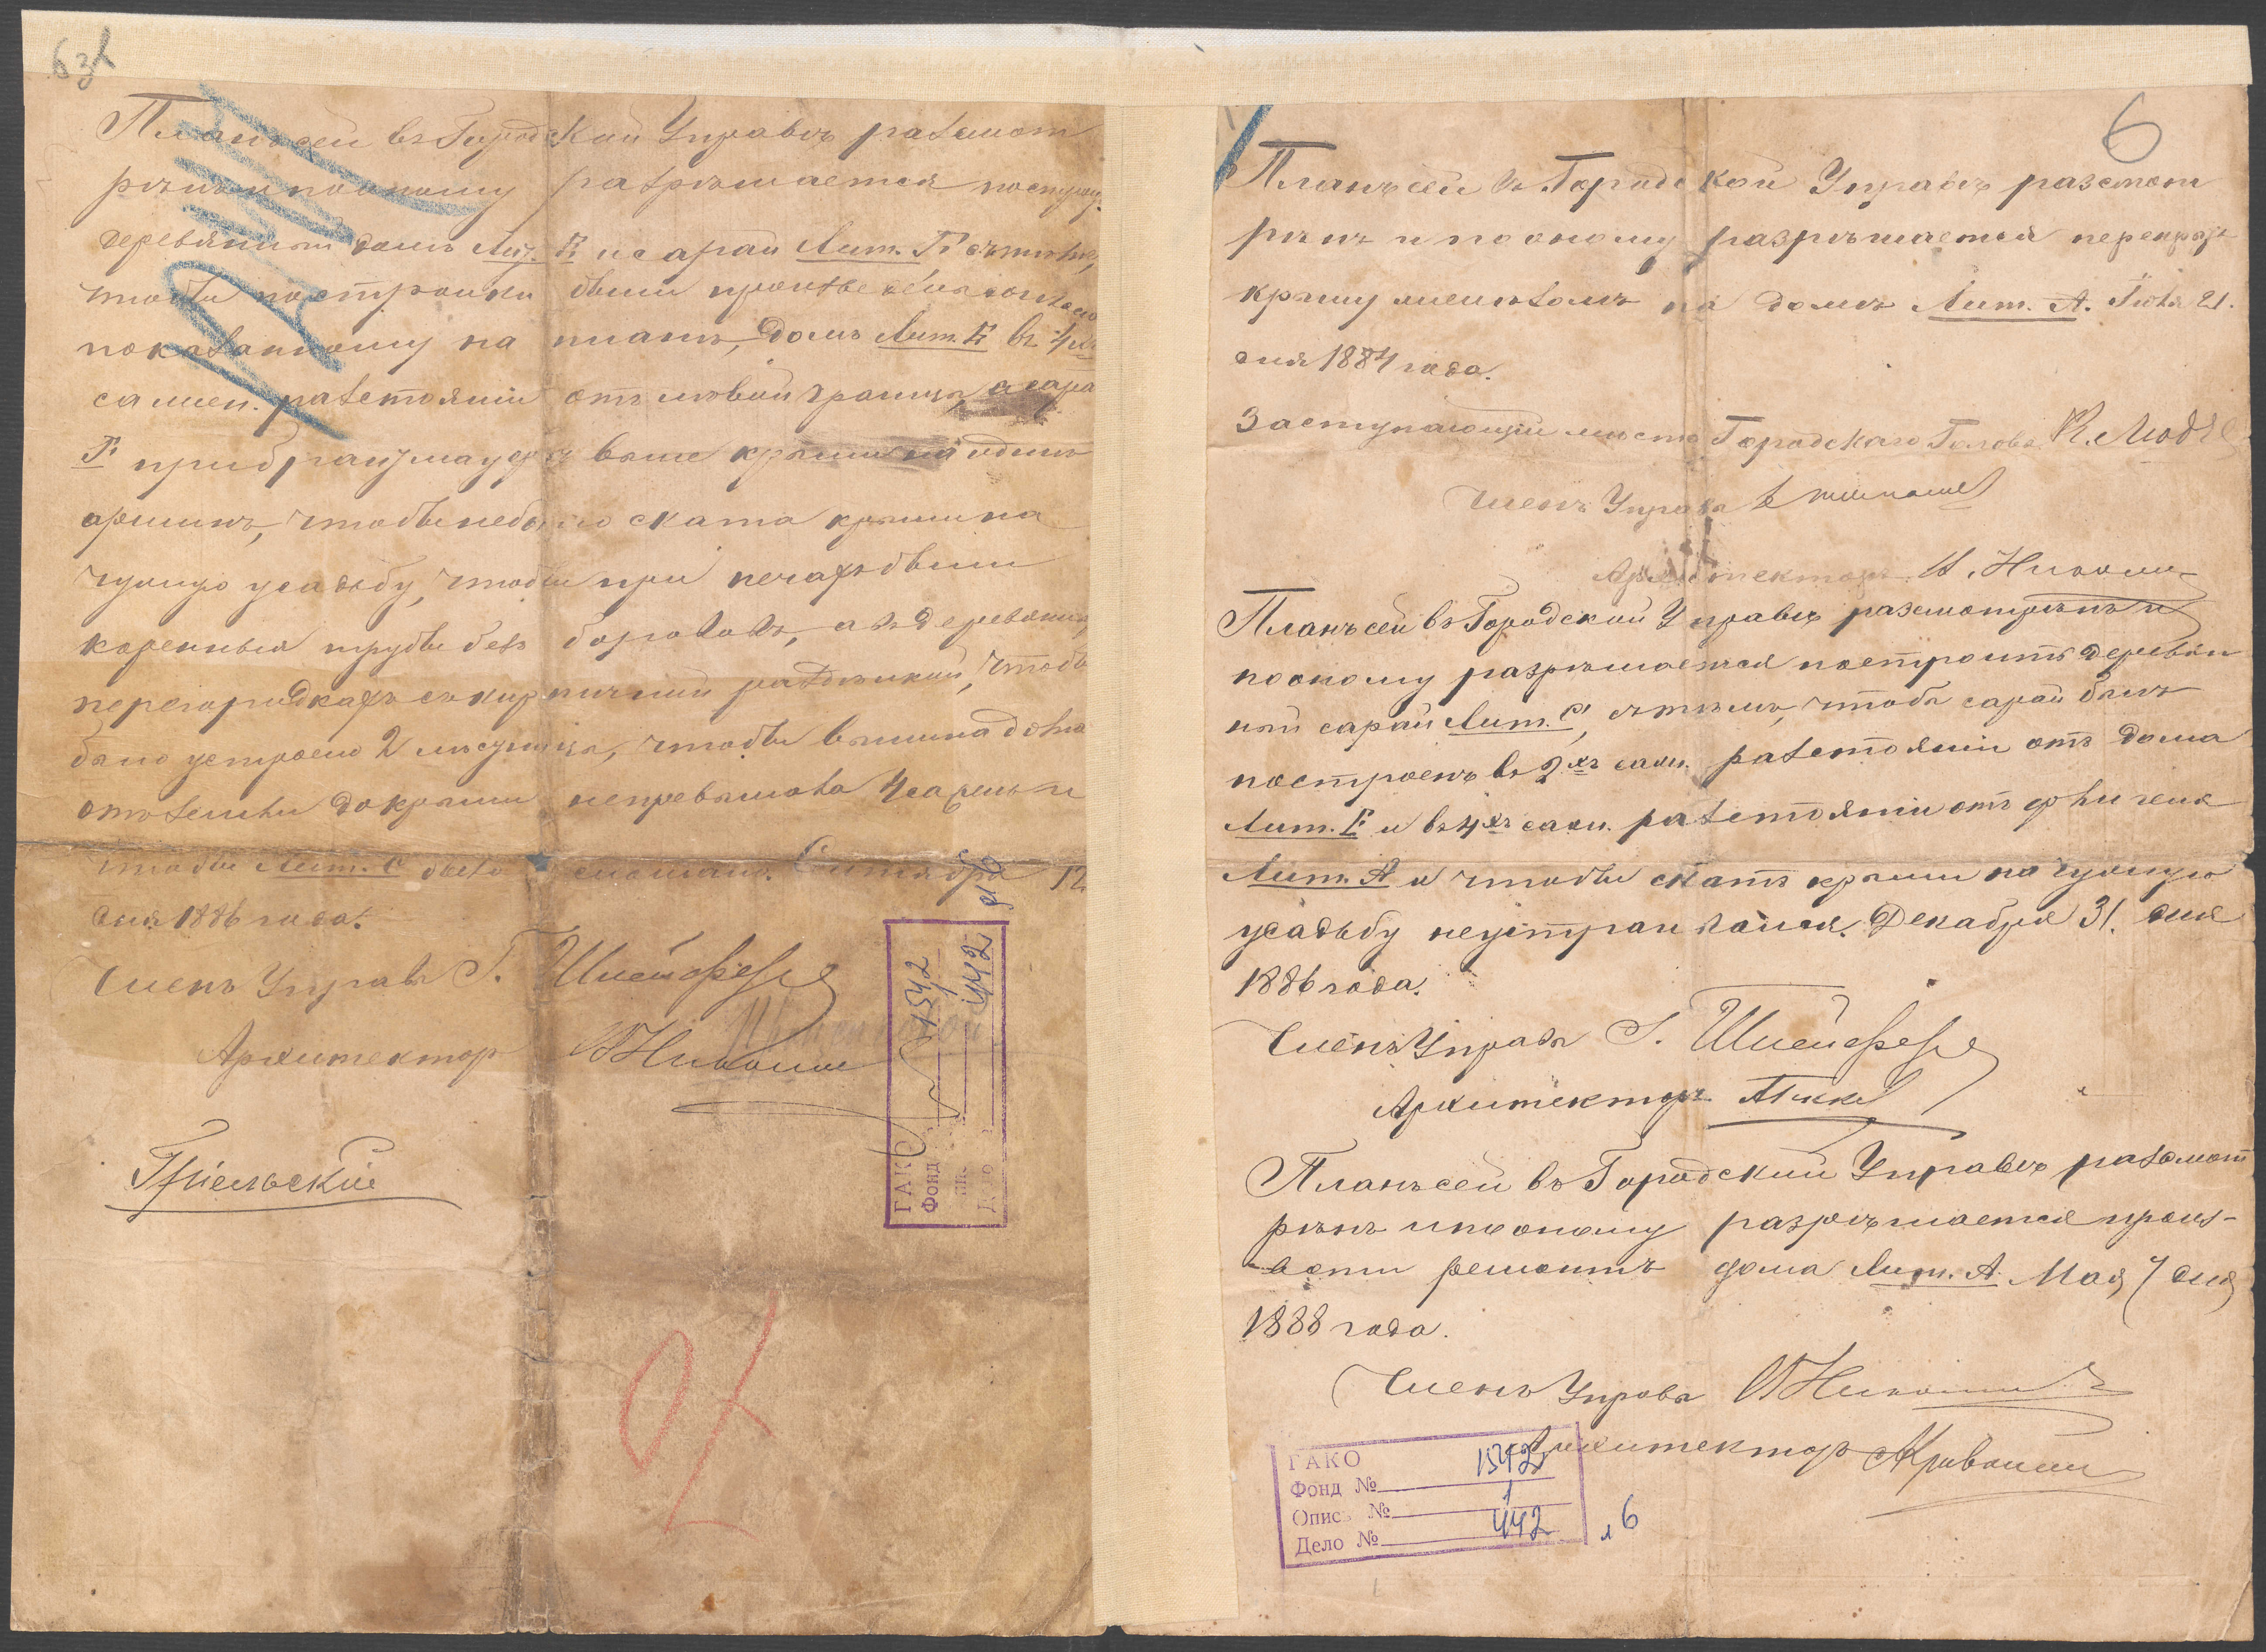 Планъ сей въ Городской Управѣ разсмот
рѣнъ и по оному разрѣшается построи.
деревянный домъ Лит. Б и сарай Лит. Г съ тѣмъ,
чтобы постройки были произведены согласно
показанному на планѣ, домъ Лит. Б въ 4хъ
сажен. разстояніи отъ лѣвой границы, а сара
Г при брантмауерѣ выше крыши на одинъ
аршинъ, чтобы небыло ската крыши на
чужую усадьбу, чтобы при печахъ были
коренныя трубы безъ борововъ, а въ деревянн.
перегородкахъ съ кирпичной раздѣлкой, чтобы
было устроено 2 лѣстницы, чтобы вышина дома
отъ земли до крыши непревышала 4 сажень и
чтобы Лит. С было сломано. Сентября 12
дня 1886 года.
Членъ Управы Г. Шлейферъ
Архитекторъ В Николаев
63
ГАКО
Фонд 1542
Дело 442
6
Планъ сей въ Городской Управѣ разсмот
рѣнъ и по оному разрѣшается перекрыть
крышу желѣзомъ на домѣ Лит. А. Іюля 21.
дня 1884 года.
Заступающій мѣсто Городскаго Головы К.
Членъ Управы
Архитекторъ В. Николаев
Планъ сей въ Городской Управѣ разсмотрѣнъ и
по оному разрѣшается построить деревян
ный сарай Лит. С, съ тѣмъ, чтобы сарай былъ
построенъ въ 2хъ саж. разстояніи отъ дома
Лит. Б и въ 4хъ саж. разстояніи отъ флигеля
Лит. А и чтобы скатъ крыши на чужую
усадьбу неустраивался. Декабря 31. дня
1886 года.
Членъ Управы Г. Шлейферъ
Архитекторъ
Планъ сей въ Городской Управѣ разсмот
рѣнъ и по оному разрѣшается произ-
вести ремонтъ дома Лит. А. Мая 7 дня
1888 года.
Членъ Управы В Николаев
Архитекторъ А Кривошеев
ГАКО
Фонд № 1542
Опись № 1
Дело № 442
л 6